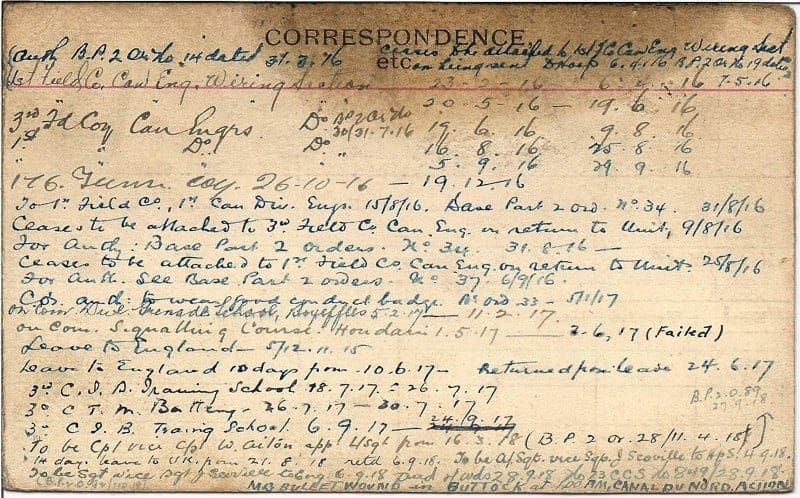 CORRESPONDENCE
etc
(Auth B.P.2 Or No 14 dated 31.3.16 ceases to be attached to 1st Fd Can Eng Wiring Sect
on being sent to Hosp 6.4.16 B.P.2 Or No 19 dated
1st Field Co. Can Eng. Wiring Section 23-2-16 6-4-16 7-5-16
20-5-16 - 19.6.16
3rd Fd Coy Can Engrs Do BP2 Or No 30/31.7.16 19.6.16 9.8.16
1st " " Do. Do 16 8.16 25 8.16
" " " " 5.9.16 29 9.16
176. Tunn. Coy. 26-10-16 - 19.12.16
To 1st Field Co, 1st Can Div. Engs. 15/8/16. Base Part 2 ord. No. 34. 31/8/16
Ceases to be attached to 3rd Field Co. Can Eng. on return to Unit, 9/8/16
For Auth: Base Part 2 orders. No 34. 31.8.16 -
Ceases to be attached to 1st Field Co. Can Eng. on return to Unit. 25/8/16
For Auth. See Base Part 2 orders. No 37. 6/9/16.
auth: to wear good conduct badge. ord 33 - 5/1/17
on Com Divl. Grenade School, 5.2.17 - 11.2.17
on Com. Signalling Course. Houdain 1.5.17 - 2.6.17 (Failed)
Leave to England - 5/12.11.15
Leave to England 10 days from 10.6.17 - Returned from leave 24.6.17
3rd C.I.B. Training School 18.7.17 - 26.7.17
3rd C T. M. Battery 26.7.17 - 30.7.17
3rd C I B. Traing School. 6.9.17 - 24.9.17
B.P.2.0.89
27.9.18
To be Cpl vice Cpl W. Aiton app L/Sgt from 16.3.18 (B.P.2 or. 28/11.4.18)
14 days leave to U.K. from 21.8.18 retd 6.9.18. To be A/Sgt. vice Sgt. J Scoville to Hp S. 4.9.18.
To be Sgt vice Sgt J Scoville to Eng. 6.9.18 Died of wds 28.9.18 No 23 CCS No 849/28.9.18.
M.G. BULLET WOUND in BUTTOCK at A.M, CANAL DU NORD, ACTION